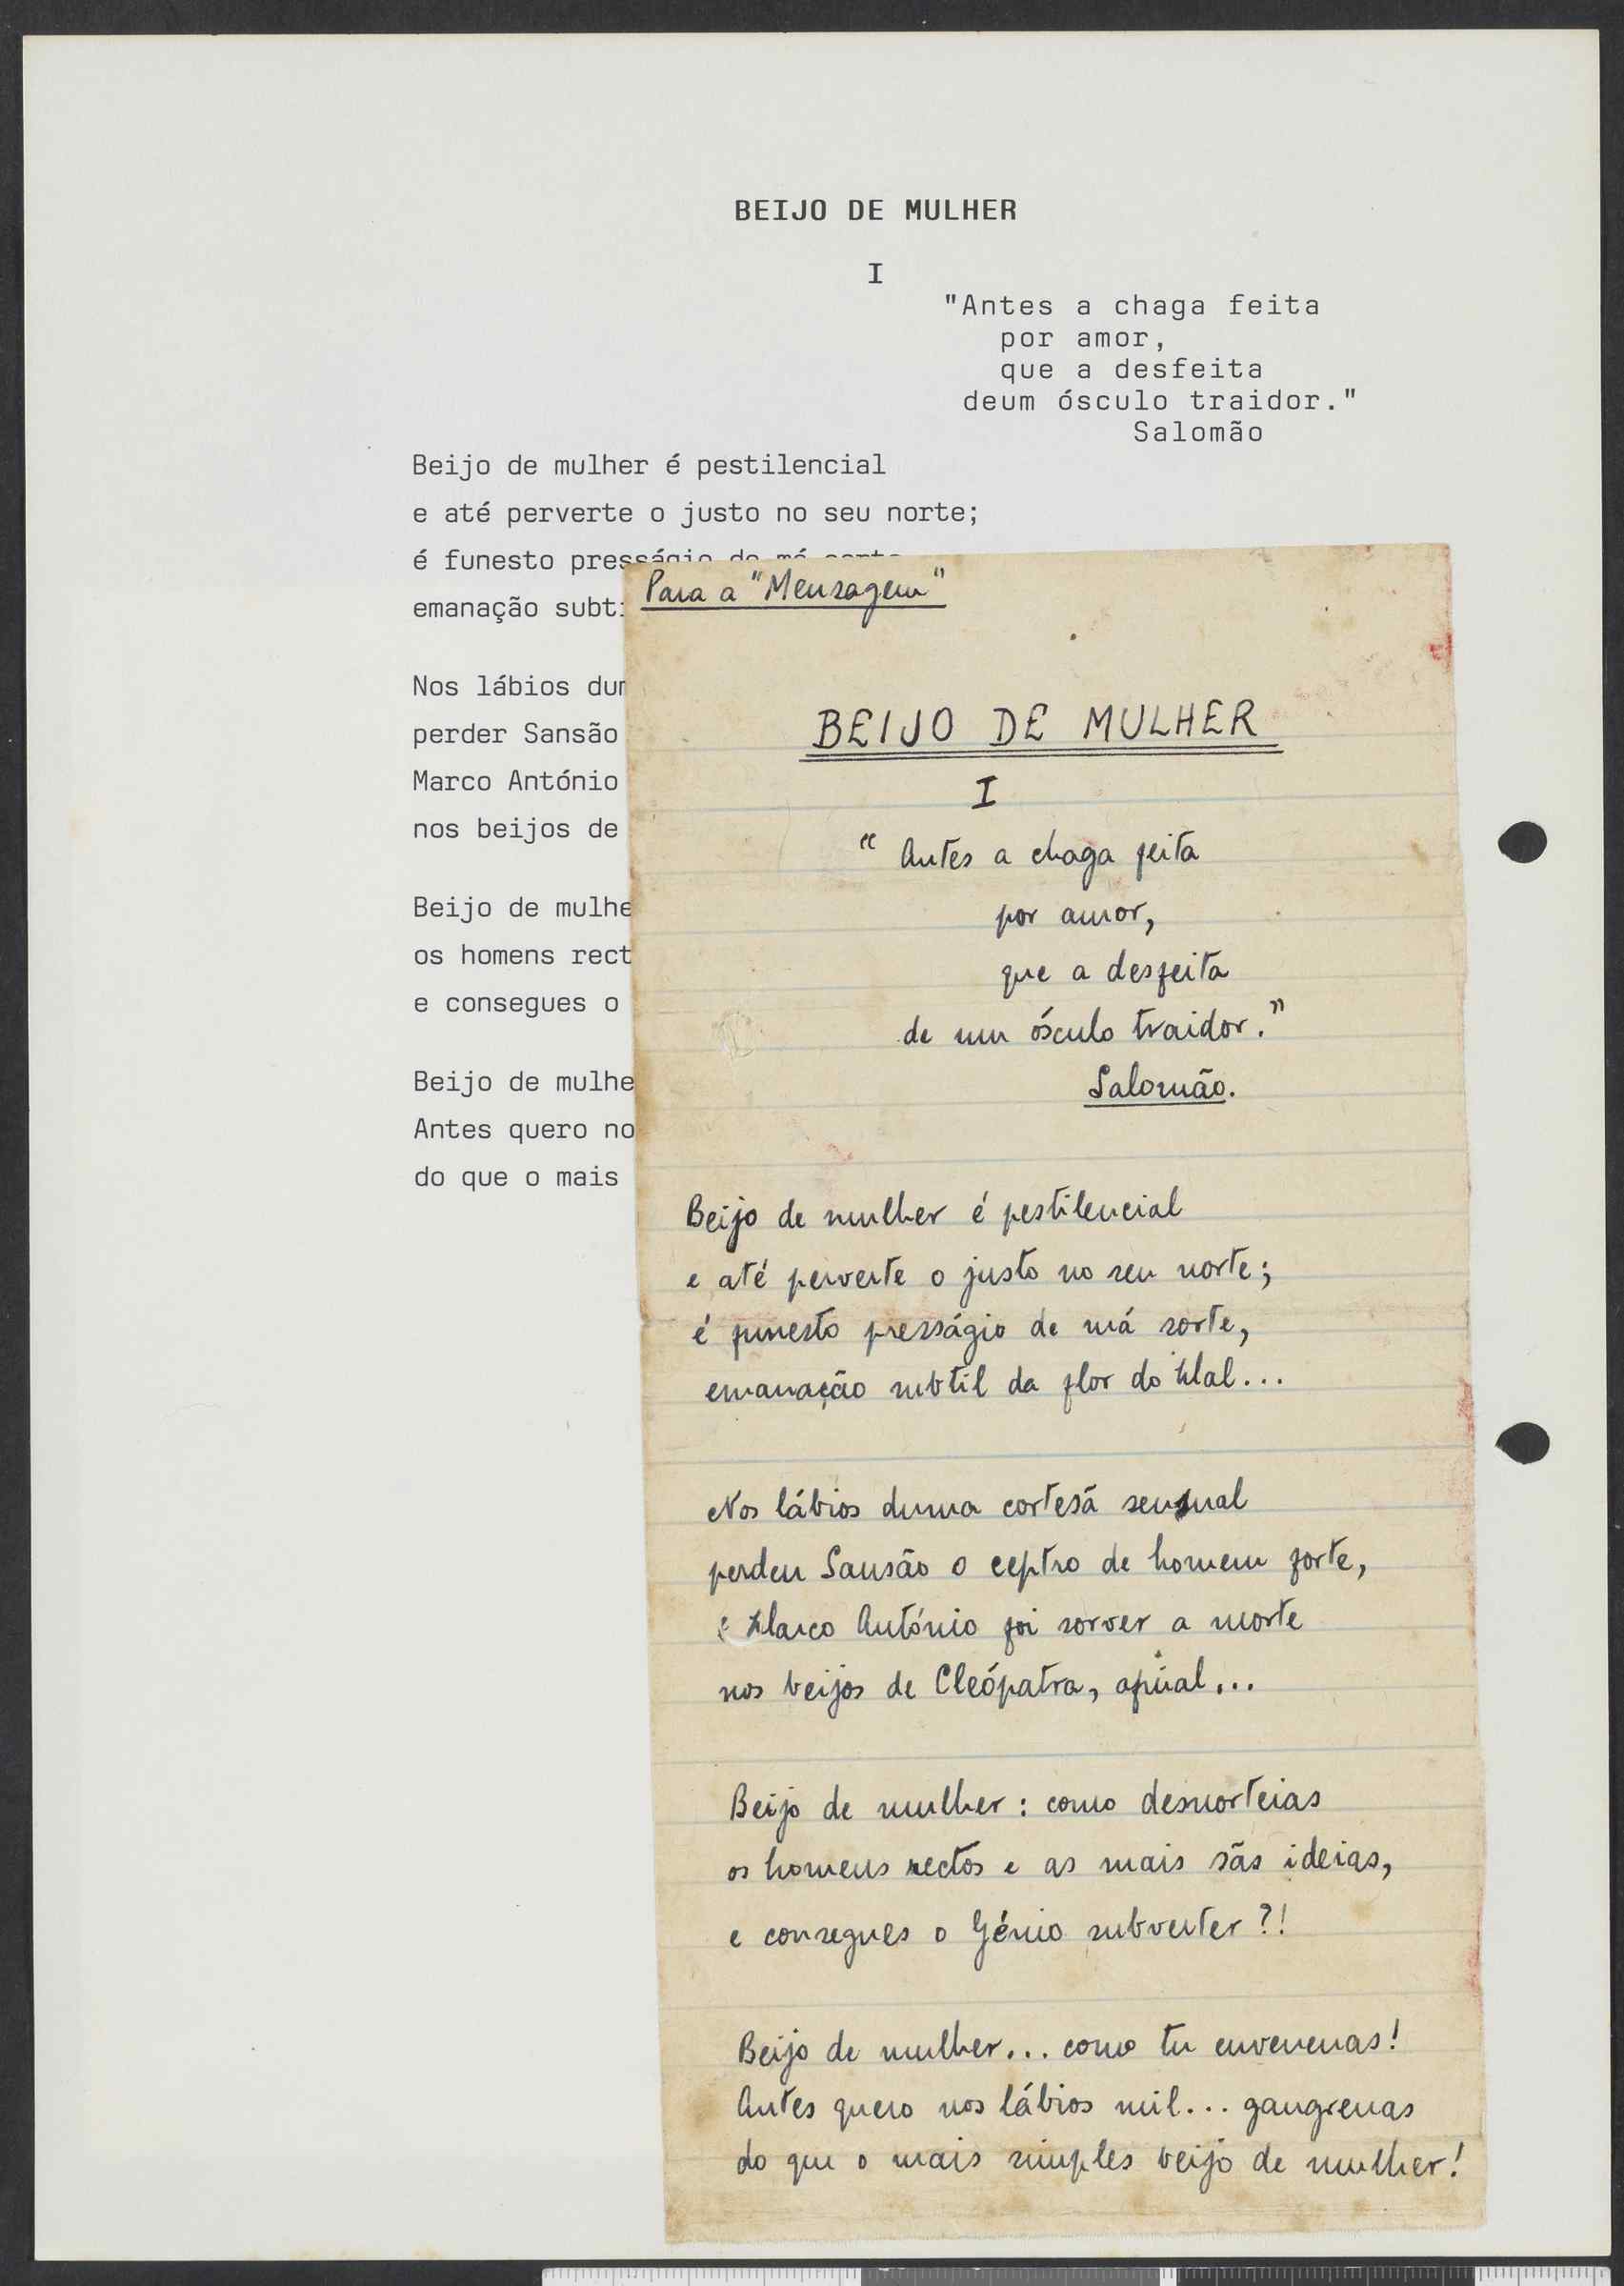 BEIJO DE MULHER
I
"Antes a chaga feita
por amor,
que a desfeita
deum ósculo traidor."
Salomão
Beijo de mulher é pestilencial
e até perverte o justo no seu norte;
é funesto presságio de má sorte
emanação subt
Nos lábios dum
perder Sansão
Marco António
nos beijos de
Beijo de mulhe
os homens rect
e consegues o
Beijo de mulhe
Antes quero no
do que o mais
Para a "Mensagem"
BEIJO DE MULHER
I
"Antes a chaga feita
por amor,
que a desfeita
de um ósculo traidor."
Salomão.
Beijo de mulher é pestilencial
e até perverte o justo no seu norte;
é funesto presságio de má sorte,
emanação subtil da flor do Mal...
Nos lábios duma cortesã sensual
perdeu Sansão o ceptro de homem forte,
e Marco António foi sorver a morte
nos beijos de Cleópatra, afinal...
Beijo de mulher: como desnorteias
os homens rectos e as mais sãs ideias,
e consegues o Génio subverter?!
Beijo de mulher... como tu envenenas!
Antes quero nos lábios mil... gangrenas
do que o mais simples beijo de mulher!